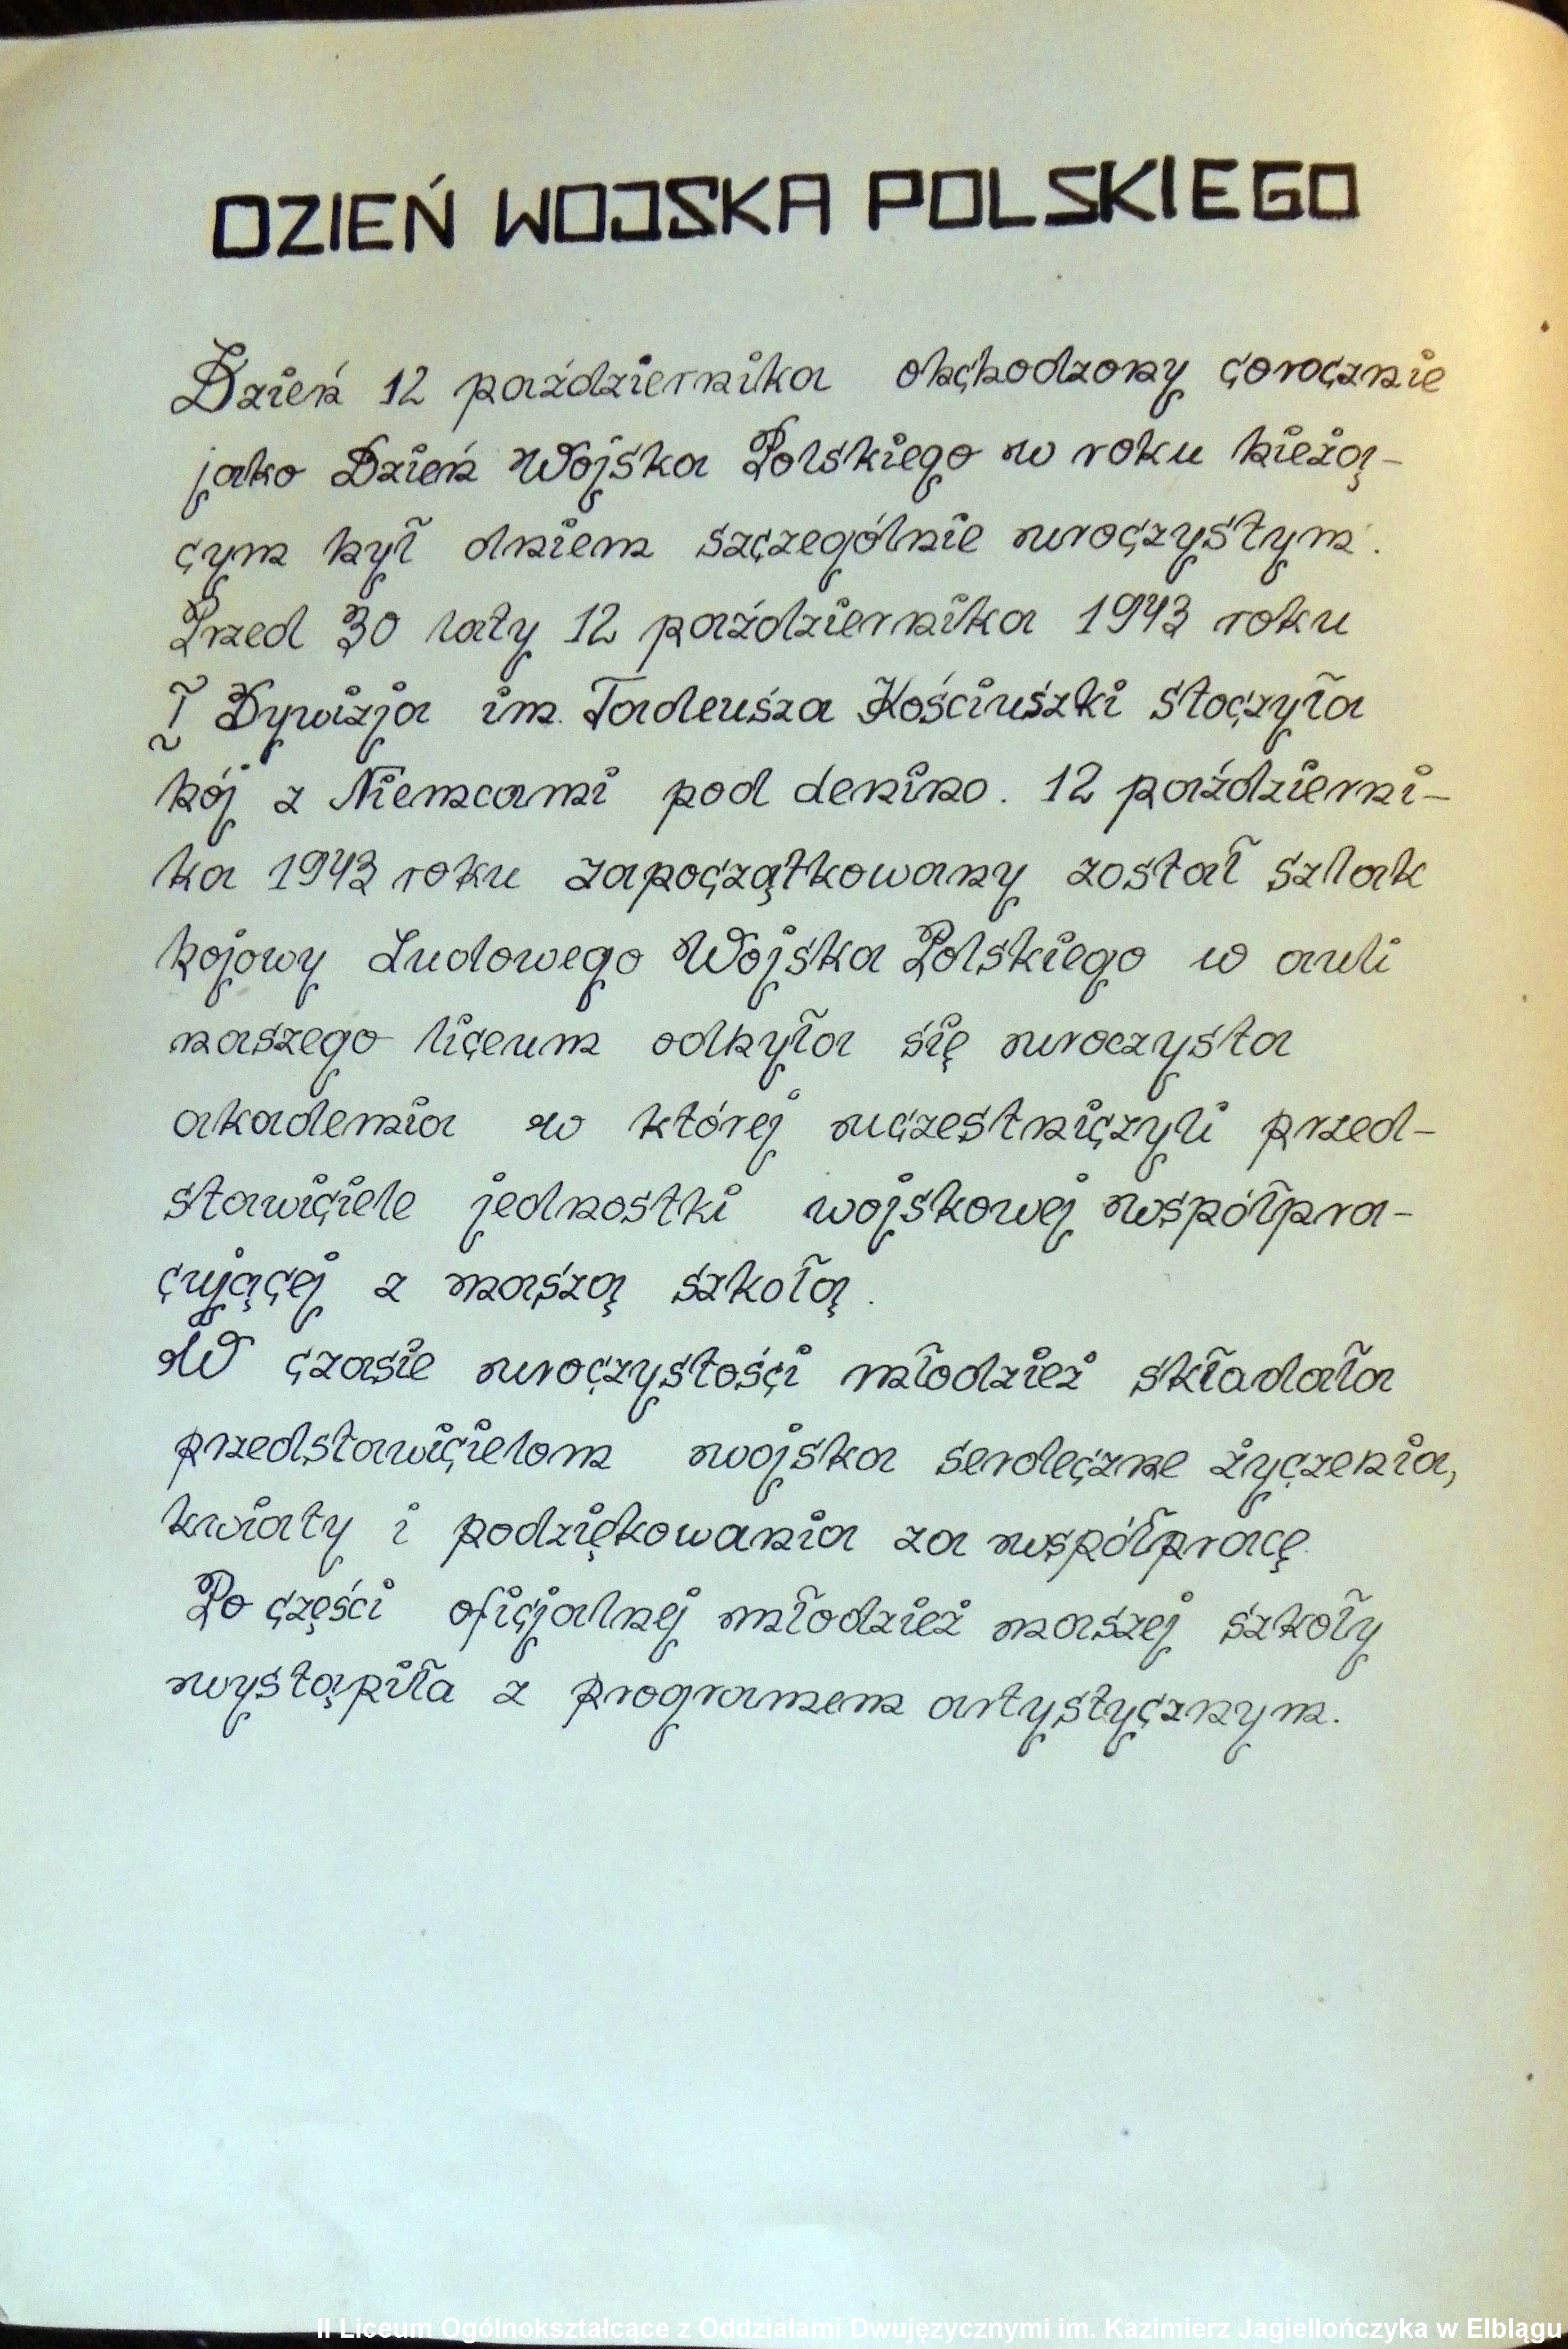 DZIEŃ WOJSKA POLSKIEGO
Dzień 12 października obchodzony corocznie
jako Dzień Wojska Polskiego w roku bieżą-
cym był dniem szczególnie uroczystym.
Przed 30 laty 12 października 1943 roku
I Dywizja im. Tadeusza Kościuszki stoczyła
bój z Niemcami pod Lenino. 12 październi-
ka 1943 roku zapoczątkowany został szlak
bojowy Ludowego Wojska Polskiego w auli
naszego liceum odbyła się uroczysta
akademia w której uczestniczyli przed-
stawiciele jednostki wojskowej współpra-
cującej z naszą szkołą.
W czasie uroczystości młodzież składała
przedstawicielom wojska serdeczne życzenia,
kwiaty i podziękowania za współpracę
Po części oficjalnej młodzież naszej szkoły
wystąpiła z programem artystycznym.
II Liceum Ogólnokształcące z Oddziałami Dwujęzycznymi im. Kazimierz Jagiellończyka w Elblągu